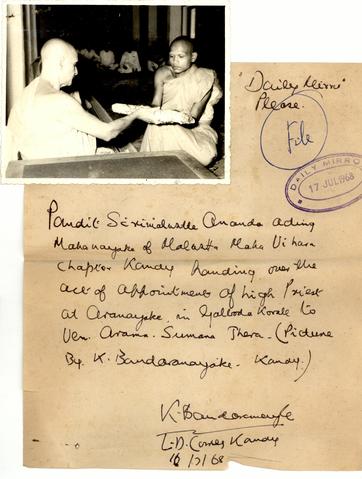 "Daily Mirror"
Please.
File
DAILY MIRROR
17 JUL 1968
Pandit Sirimalwatte Ananda acting
Mahanayake of Malwatta Maha Vihara
Chapter Kandy handing over the
act of appointments of high Priest
at Aranayake, in Galboda Korale to
Ven. Arama. Sumana Thera. (Picture
By. K. Bandaranayake. Kandy.)
K. Bandaranayake
Kandy
16/7/68